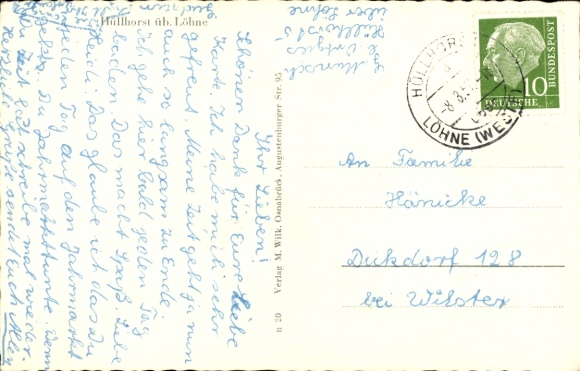 Hüllhorst üb. Löhne
Ihr Lieben!
Schönen Dank für Eure liebe
Karte. Ich habe mich sehr
gefreut. Meine Zeit geht ja nun
auch so langsam zu Ende.
Ich gehe hier bald jeden Tag
baden. Das macht Spaß. Liebe
Heidi! Das glaube ich das du
jeden Tag auf den Jahrmarkt
Du Jahrmarkttante. Denn
schreibe mal wieder.
Herzliche Grüße sendet Euch
über Löhne
Hüllhorst
n 20 Verlag M. Wilk, Osnabrück, Augustenburger Str. 95
HÜLLHORST
LÖHNE (WESTF)
DEUTSCHE BUNDESPOST
10
An Familie
Hänicke
Dückdorf 128
bei Wilster